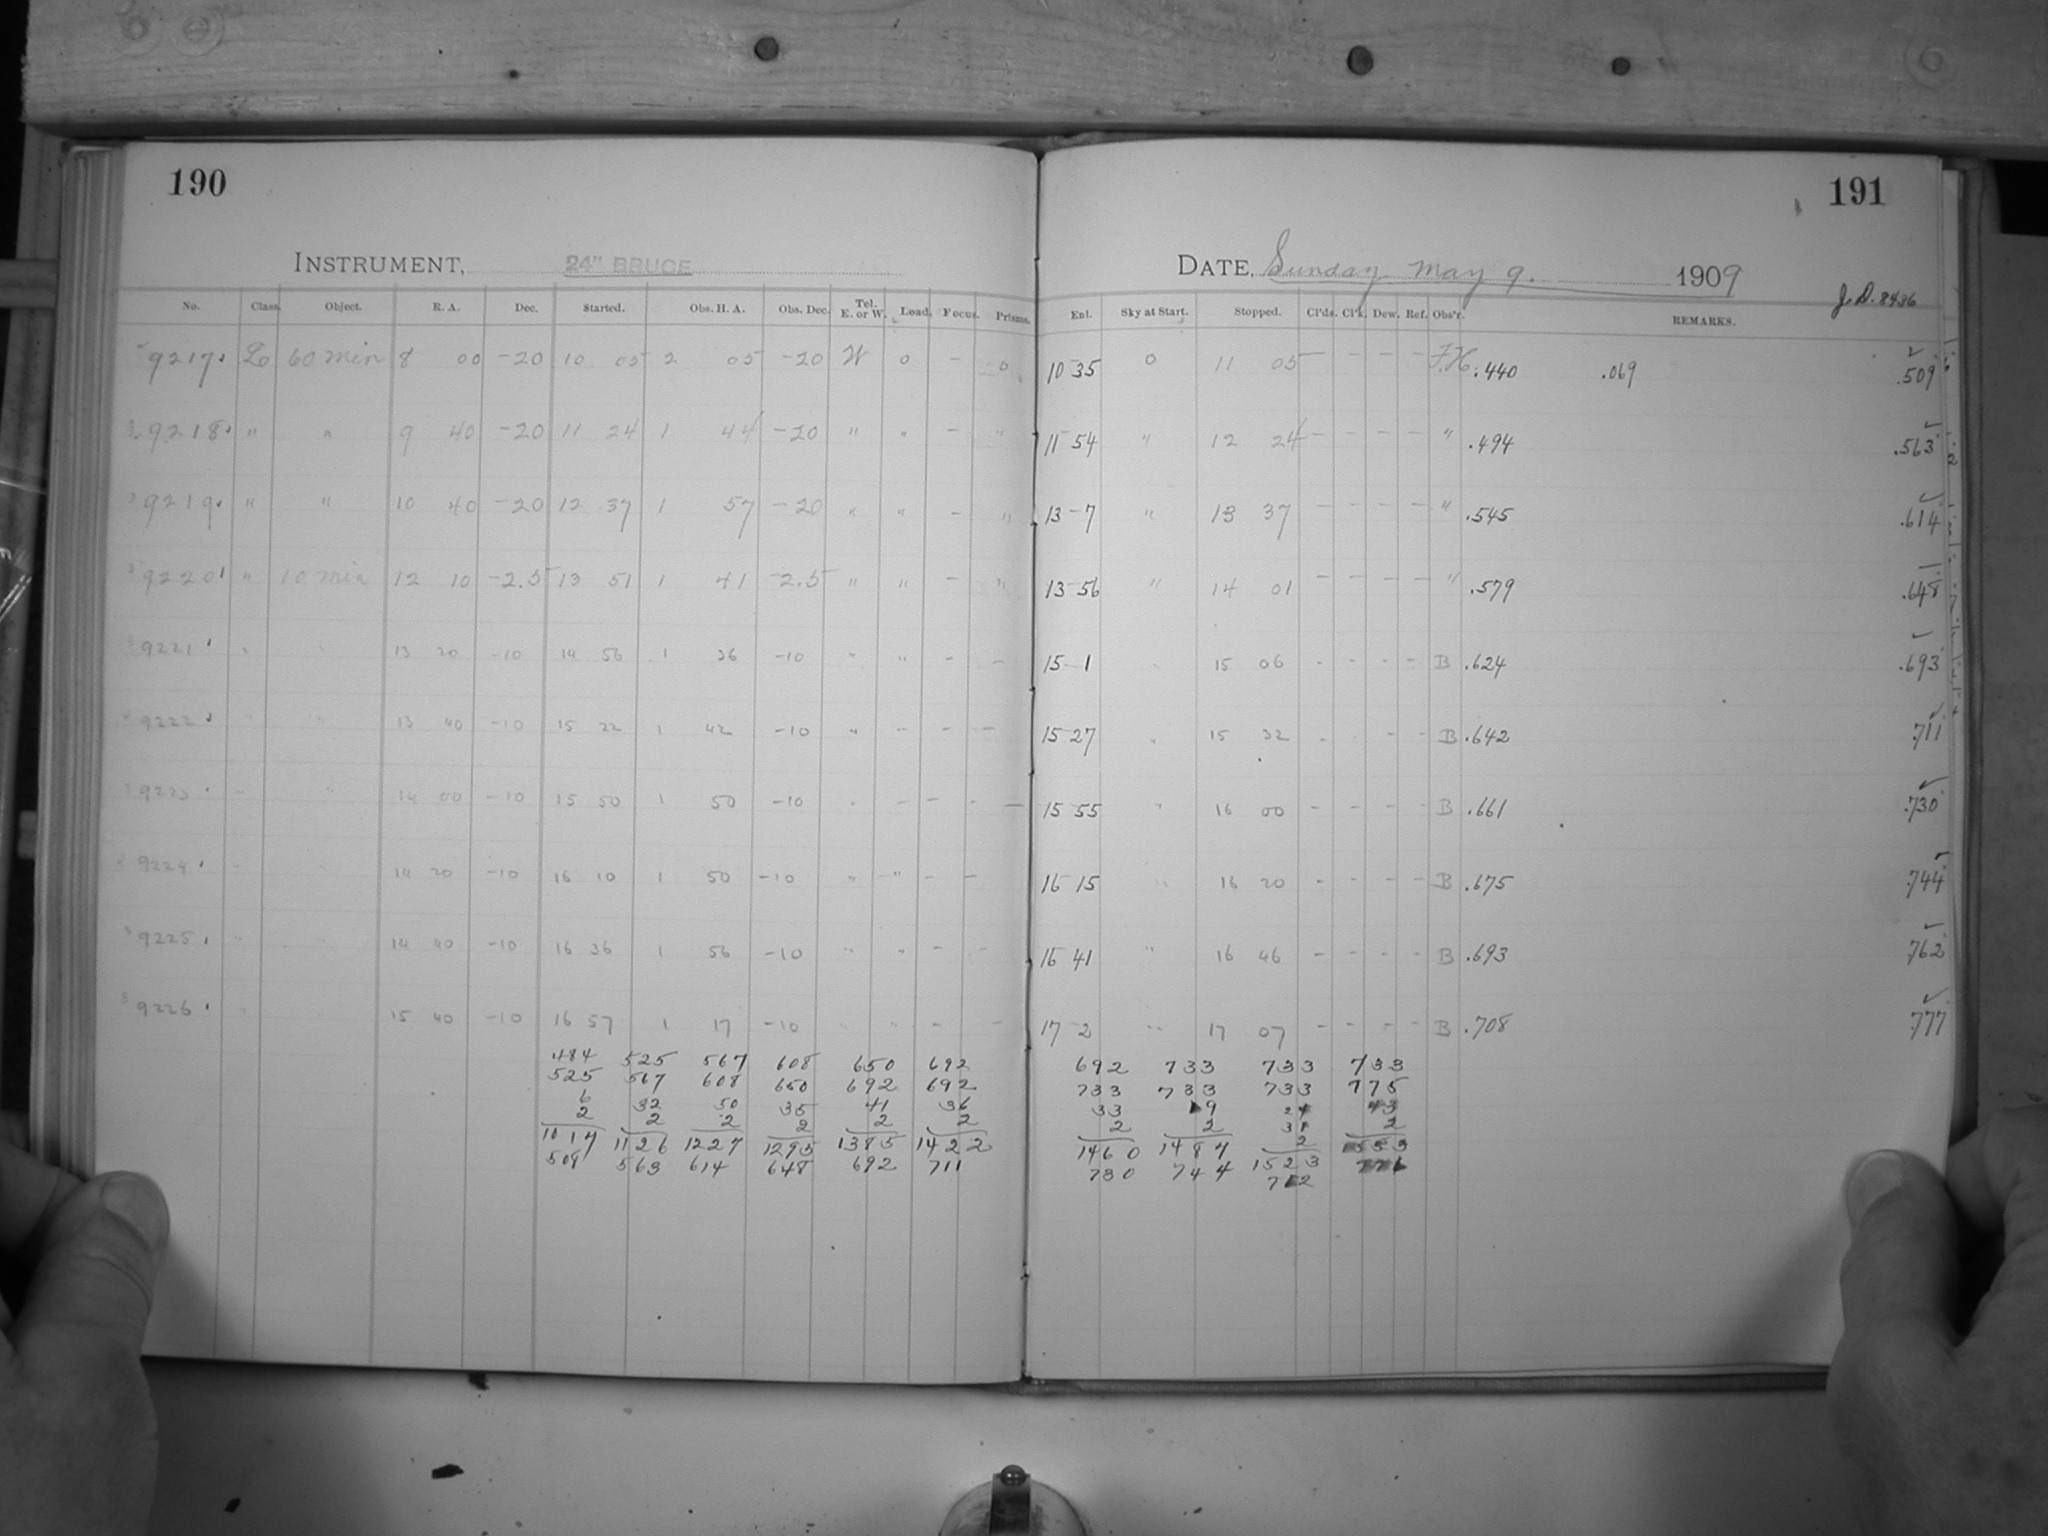 190
INSTRUMENT, 24" BRUCE
No. Class. Object. R. A. Dec. Started. Obs. H. A. Obs. Dec. Tel. E. or W. Load. Focus. Prisms.
9217 Lo 60 min 8 00 -20 10 05 2 05 -20 W 0 - 0
9218 " " 9 40 -20 11 24 1 44 -20 " " - "
9219 " " 10 40 -20 12 37 1 57 -20 " " - "
9220 " 10 min 12 10 -2.5 13 51 1 41 -2.5 " " - "
9221 " " 13 20 -10 14 56 1 36 -10 " " - -
9222 " " 13 40 -10 15 22 1 42 -10 " - - -
9223 " " 14 00 -10 15 50 1 50 -10 " - - -
9224 " " 14 20 -10 16 10 1 50 -10 " " - -
9225 " " 14 40 -10 16 36 1 56 -10 " " - -
9226 " " 15 40 -10 16 57 1 17 -10 " " - -
484 525 567 608 650 692
525 567 608 650 692 692
6 32 50 35 41 36
2 2 2 2 2 2
1017 1126 1227 1295 1385 1422
509 563 614 648 692 711
191
DATE, Sunday May 9. 1909
J.D. 8436
Ent. Sky at Start. Stopped. Cl'ds. Cl'k. Dew. Ref. Obs'r. REMARKS.
10 35 0 11 05 - - - - F.H. .440 .069 .509
11 54 " 12 24 - - - - " .494 .563
13 7 " 13 37 - - - - " .545 .614
13 56 " 14 01 - - - - " .579 .648
15 1 " 15 06 - - - - B .624 .693
15 27 " 15 32 - - - - B .642 .711
15 55 " 16 00 - - - - B .661 .730
16 15 " 16 20 - - - - B .675 .744
16 41 " 16 46 - - - - B .693 .762
17 2 " 17 07 - - - - B .708 .777
692 733 733 733
733 733 733 775
33 19 24 43
2 2 31 2
1460 1487 2 1553
730 744 1523 776
762